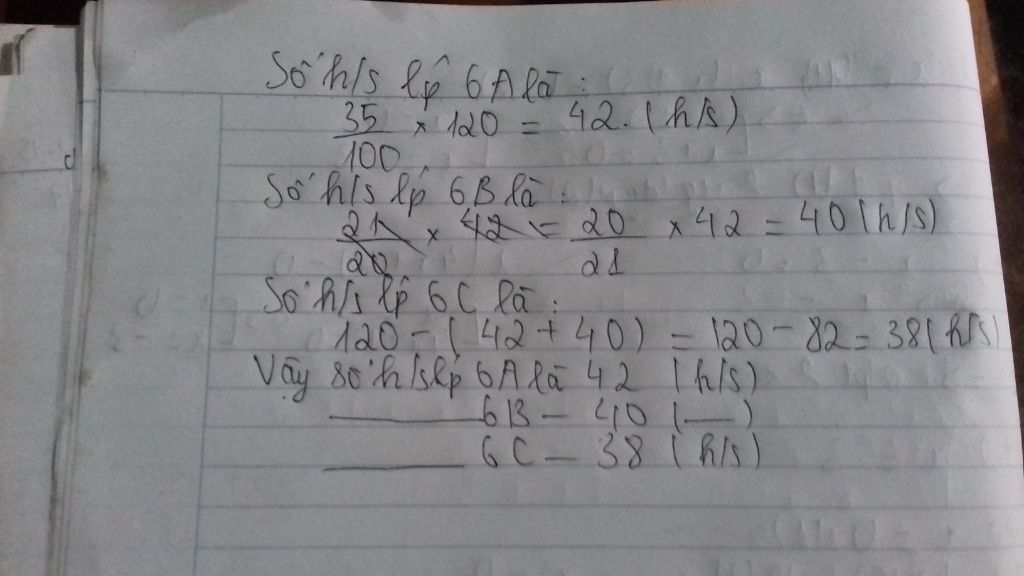 Số h/s lớp 6A là:
35/100 × 120 = 42. (h/s)
Số h/s lớp 6B là:
21/20 × 42 = 20/21 × 42 = 40 (h/s)
Số h/s lớp 6C là:
120 - (42 + 40) = 120 - 82 = 38 (h/s)
Vậy số h/s lớp 6A là 42 (h/s)
——— 6B — 40 (—)
——— 6C — 38 (h/s)